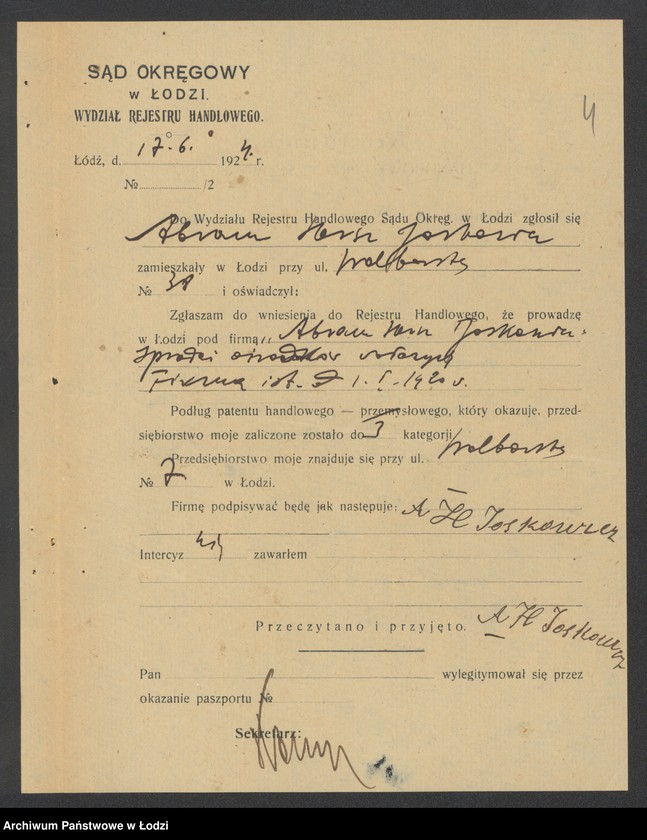 SĄD OKRĘGOWY
w ŁODZI.
WYDZIAŁ REJESTRU HANDLOWEGO.
4
Łódź, d. 17.6. 1924 r.
№ /2
Do Wydziału Rejestru Handlowego Sądu Okręg. w Łodzi zgłosił się
Abram Hersz Joskowicz
zamieszkały w Łodzi przy ul. Wolborska
№ 38 i oświadczył:
Zgłaszam do wniesienia do Rejestru Handlowego, że prowadzę
w Łodzi pod firmą „ Abram Hersz Joskowicz
Firma ist. 1.I.1920 r.
Podług patentu handlowego — przemysłowego, który okazuje, przed-
siębiorstwo moje zaliczone zostało do 3 kategorji
Przedsiębiorstwo moje znajduje się przy ul. Wolborska
№ 7 w Łodzi.
Firmę podpisywać będę jak następuje: A H Joskowicz
Intercyz nie zawarłem
Przeczytano i przyjęto. A H Joskowicz
Pan wylegitymował się przez
okazanie paszportu №
Sekretarz:
Archiwum Państwowe w Łodzi